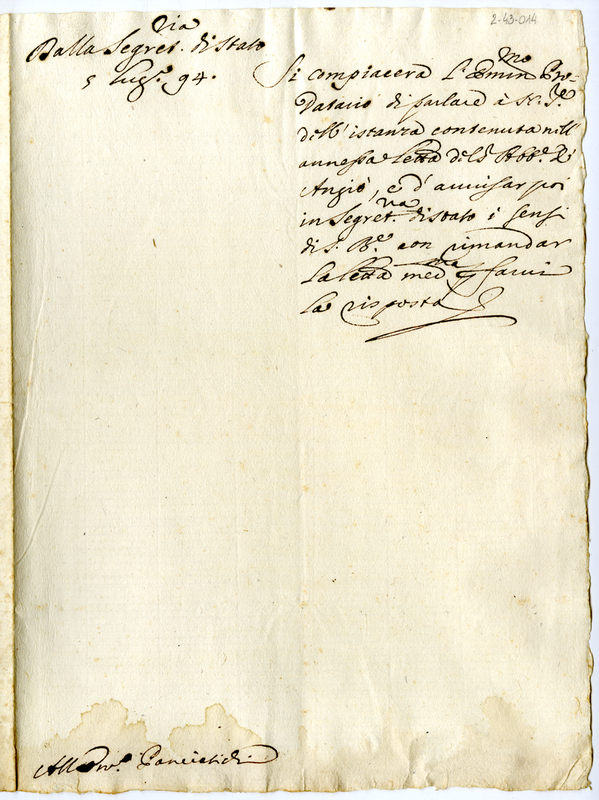 2-43-014
Dalla Segret.ria di Stato
5 lug.o 94.
Si compiacerà l'Emin.mo Pro-
Datario di parlare à N. S.re
dell'istanza contenuta nell'
annessa lett.a del S.r Abb.e d'
Angiò, e d'avvisar poi
in Segret.ria di Stato i sensi
di S. B.e con rimandar
la lett.a med.ma p farvi
la risposta
All' Em.o Panciatichi